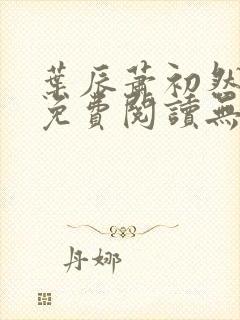 葉辰蕭初然
免費閱讀無
丹娜